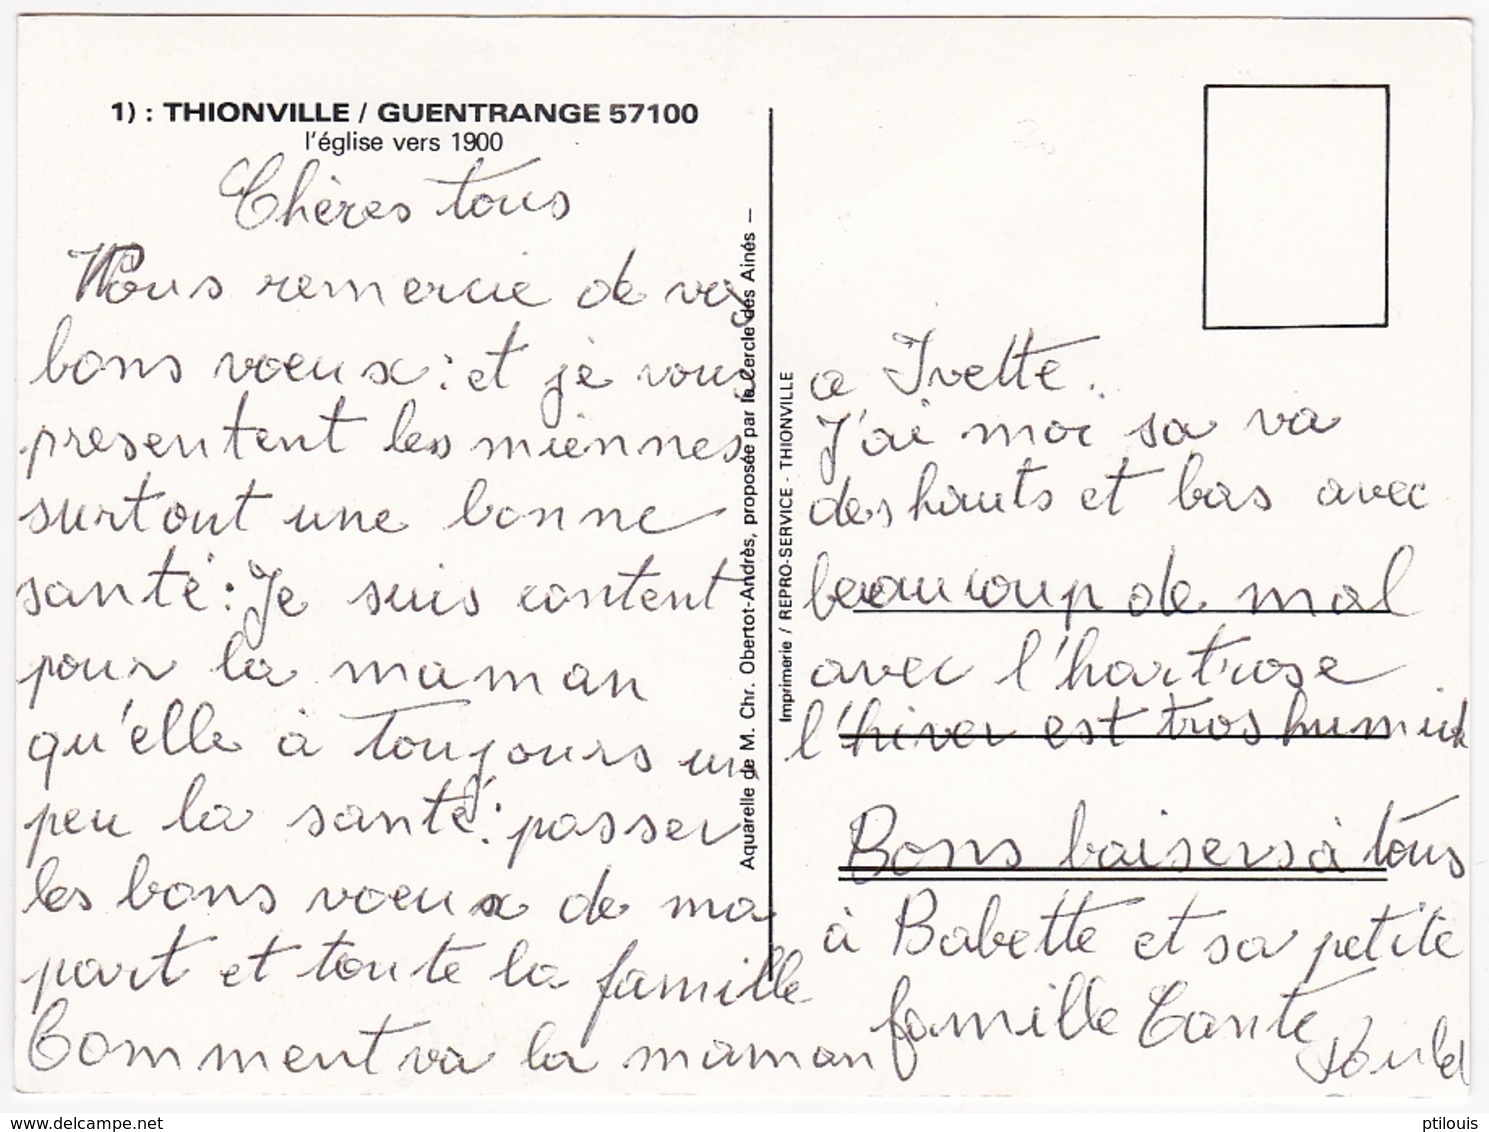 1) : THIONVILLE / GUENTRANGE 57100
l'église vers 1900
Chères tous
Nous remercie de vos
bons voeux : et je vous
presentent les miennes
surtout une bonne
santé : Je suis content
pour la maman
qu'elle à toujours un
peu la santé : passer
les bons voeux de ma
part et toute la famille
Comment va la maman
Aquarelle de M. Chr. Obertot-Andrès, proposée par le Cercle des Ainés —
Imprimerie / REPRO-SERVICE - THIONVILLE
a Ivette.
J'ai moi sa va
des hauts et bas avec
beaucoup de mal
avec l'hartrose
l'hiver est tros humide
Bons baisers à tous
à Babette et sa petite
famille Tante
ptilouis